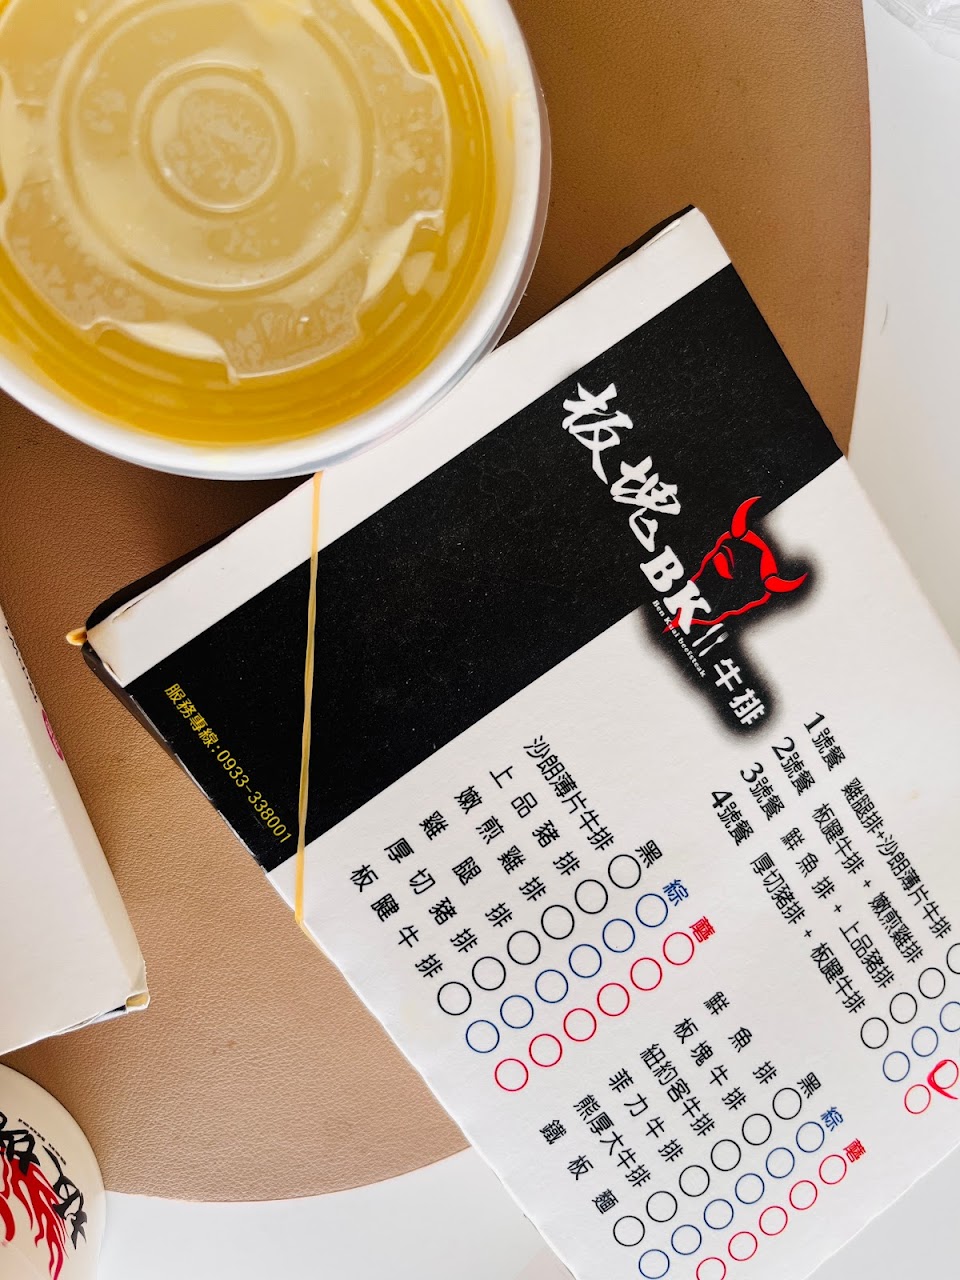 板塊
BK
Ben Kuai beefsteak
牛排
服務專線:0933-338001
1號餐 雞腿排+沙朗薄片牛排
2號餐 板腱牛排+嫩煎雞排
3號餐 鮮魚排+上品豬排
4號餐 厚切豬排+板腱牛排
黑 綜 蘑
沙朗薄片牛排
上品豬排
嫩煎雞排
雞腿排
厚切豬排
板腱牛排
黑 綜 蘑
鮮魚排
板塊牛排
紐約客牛排
菲力牛排
熊厚大牛排
鐵板麵